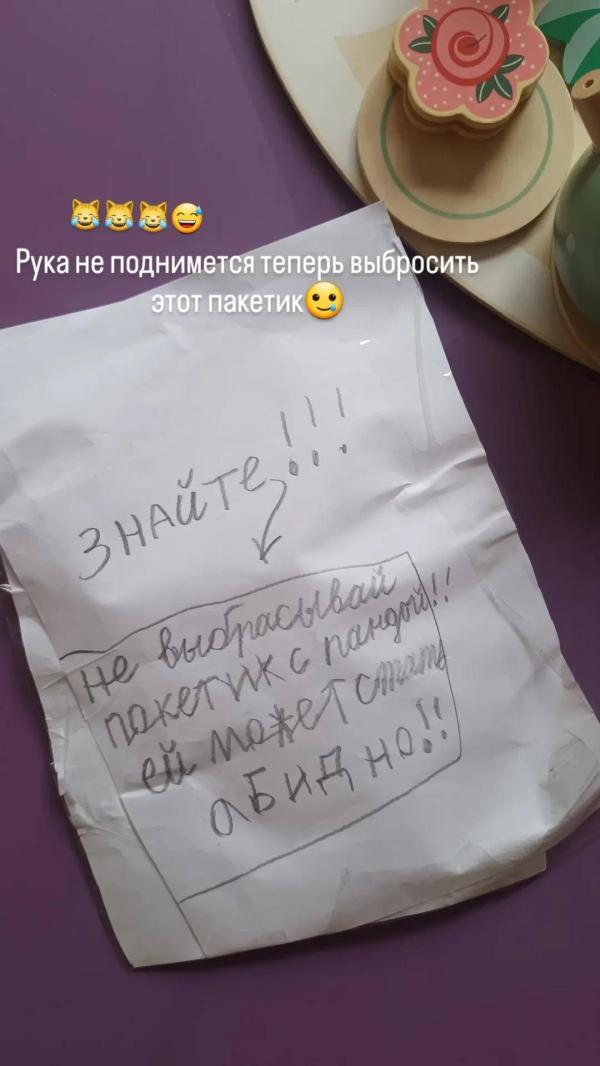 😹😹😹😅
Рука не поднимется теперь выбросить
этот пакетик🥲
ЗНАЙТЕ!!!
не выбрасывай
пакетик с пандой!!
ей может стать
абидно!!